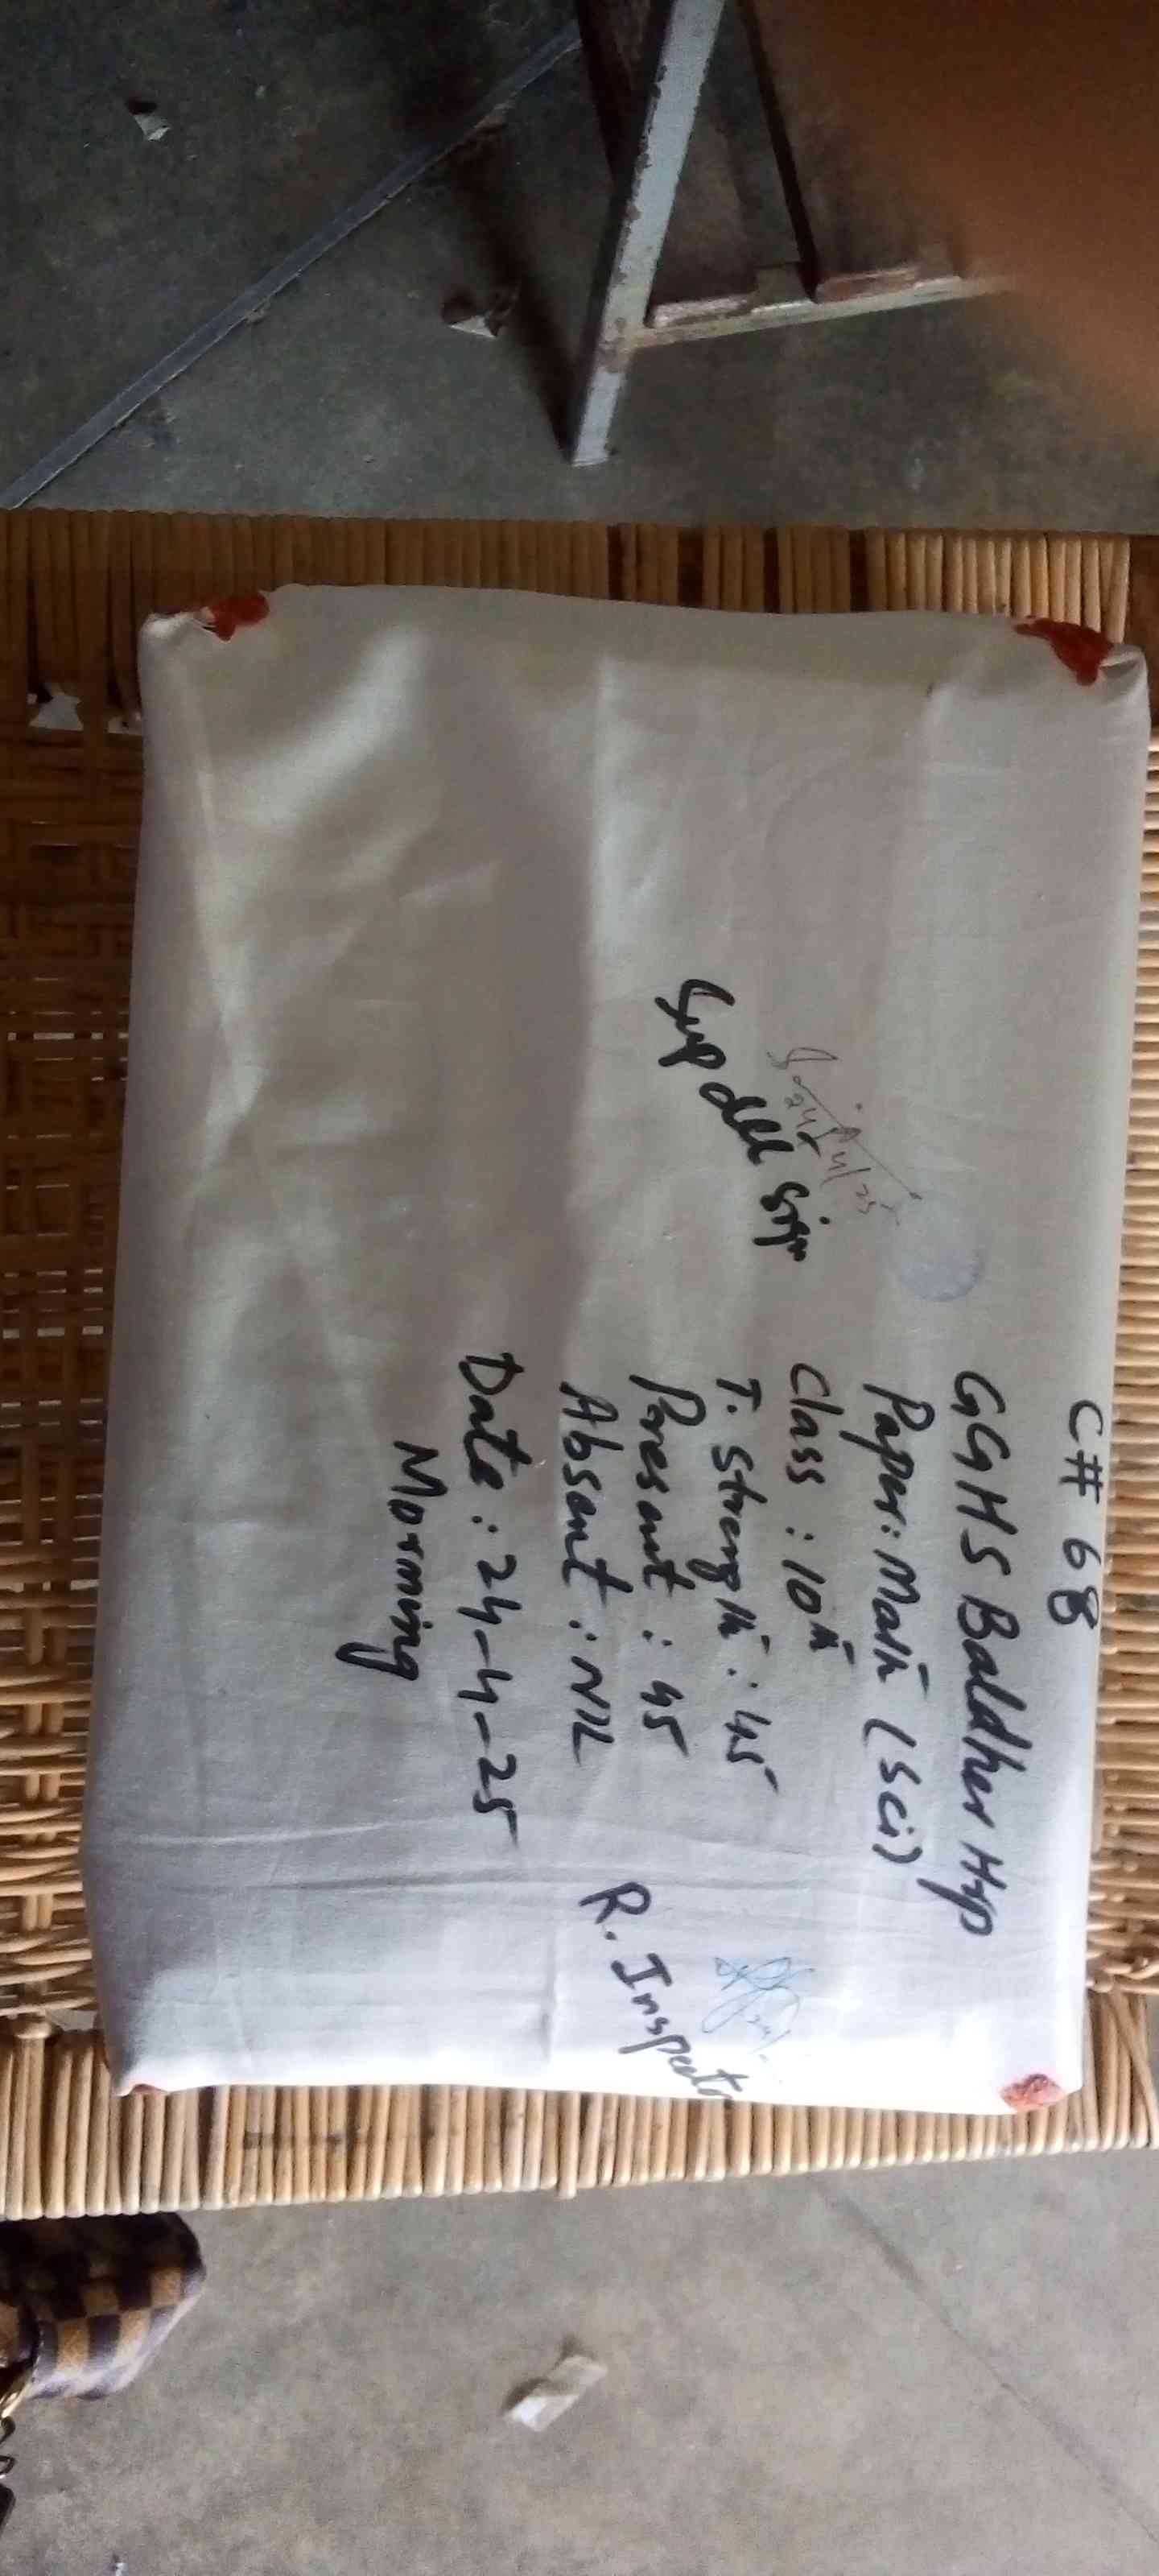 C# 68
GGHS Baldher Hrp
Paper: Math (Sci)
Class : 10th
T. Strength : 45
Present : 45
Absent : NIL
Date : 24-4-25
Morning
24/4/25
Sup dll sign
R. Inspector